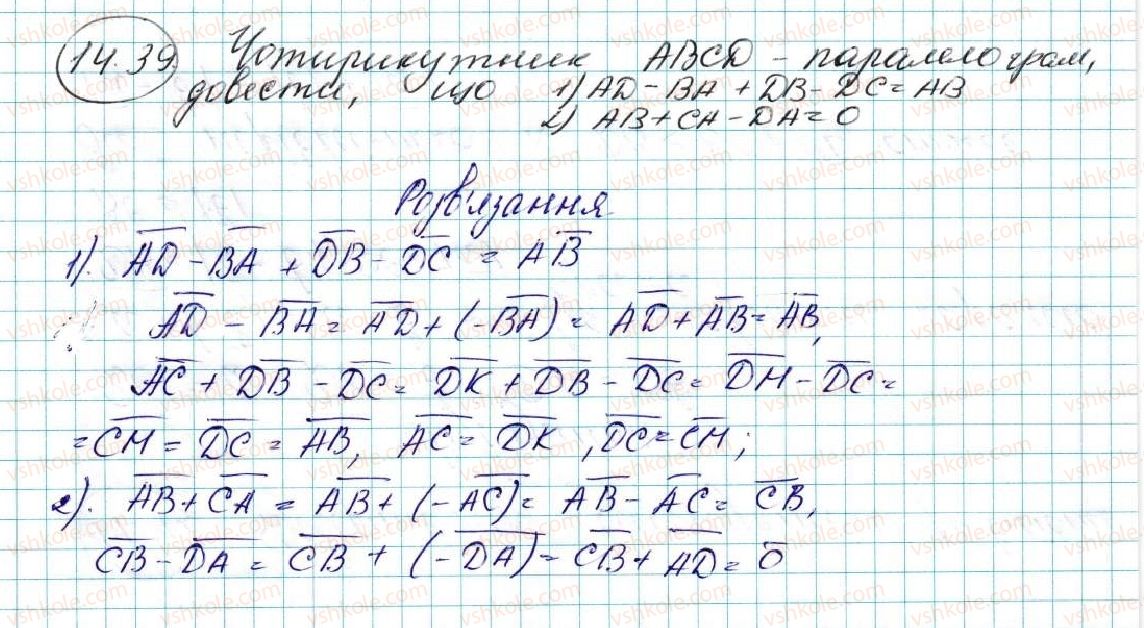 14.39 Чотирикутник ABCD - паралелограм,
довести, що 1) AD - BA + DB - DC = AB
2) AB + CA - DA = 0
Розв'язання
1). A͞D - B͞A + D͞B - D͞C = A͞B
A͞D - B͞A = A͞D + (-B͞A) = A͞D + A͞B = A͞B,
A͞C + D͞B - D͞C = D͞K + D͞B - D͞C = D͞M - D͞C =
= C͞M = D͞C = A͞B, A͞C = D͞K, D͞C = C͞M;
2). A͞B + C͞A = A͞B + (-A͞C) = A͞B - A͞C = C͞B,
C͞B - D͞A = C͞B + (-D͞A) = C͞B + A͞D = 0̅